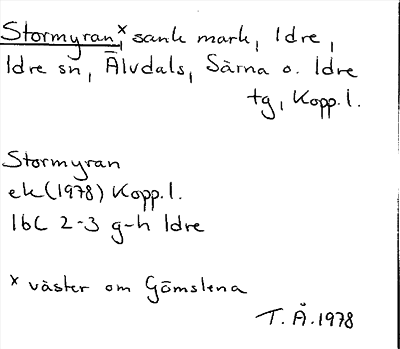 Stormyran,x sank mark, Idre,
Idre sn, Älvdals, Särna o. Idre
tg, Kopp.l.
Stormyran
ek(1978) Kopp.l.
16C 2-3 g-h Idre
x väster om Gömslena
T.Å.1978